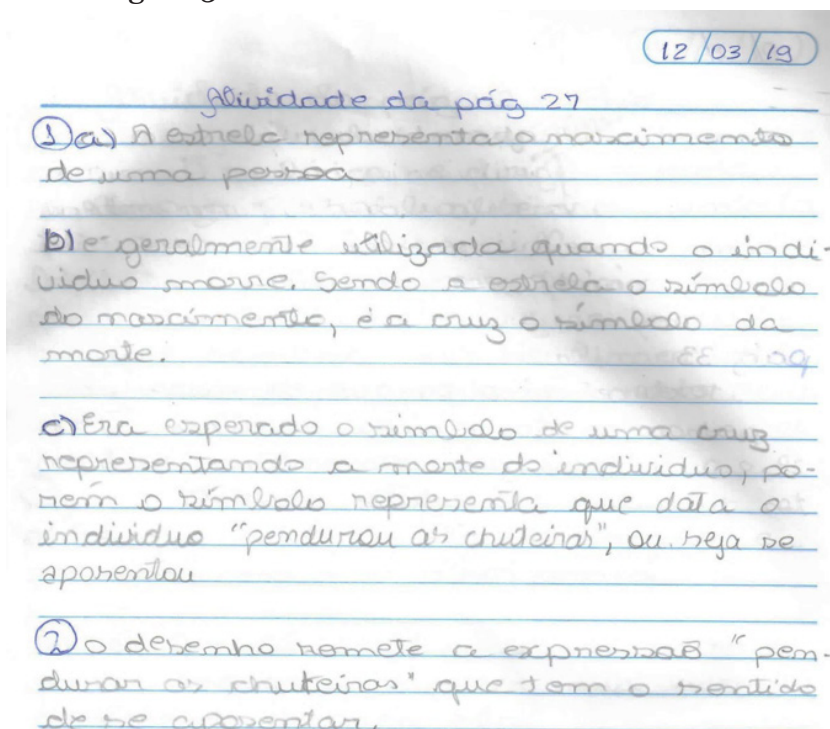 12/03/19
Atividade da pág 27
1 a) A estrela representa o nascimento
de uma pessoa
b) e geralmente utilizada quando o indi-
viduo morre. Sendo a estrela o símbolo
do nascimento, é a cruz o símbolo da
morte.
c) Era esperado o simbolo de uma cruz
representando a morte do individuo, po-
rem o símbolo representa que data o
individuo "pendurou as chuteiras", ou seja se
aposentou
2 o desenho remete a expressaõ "pen-
durar as chuteiras" que tem o sentido
de se aposentar.